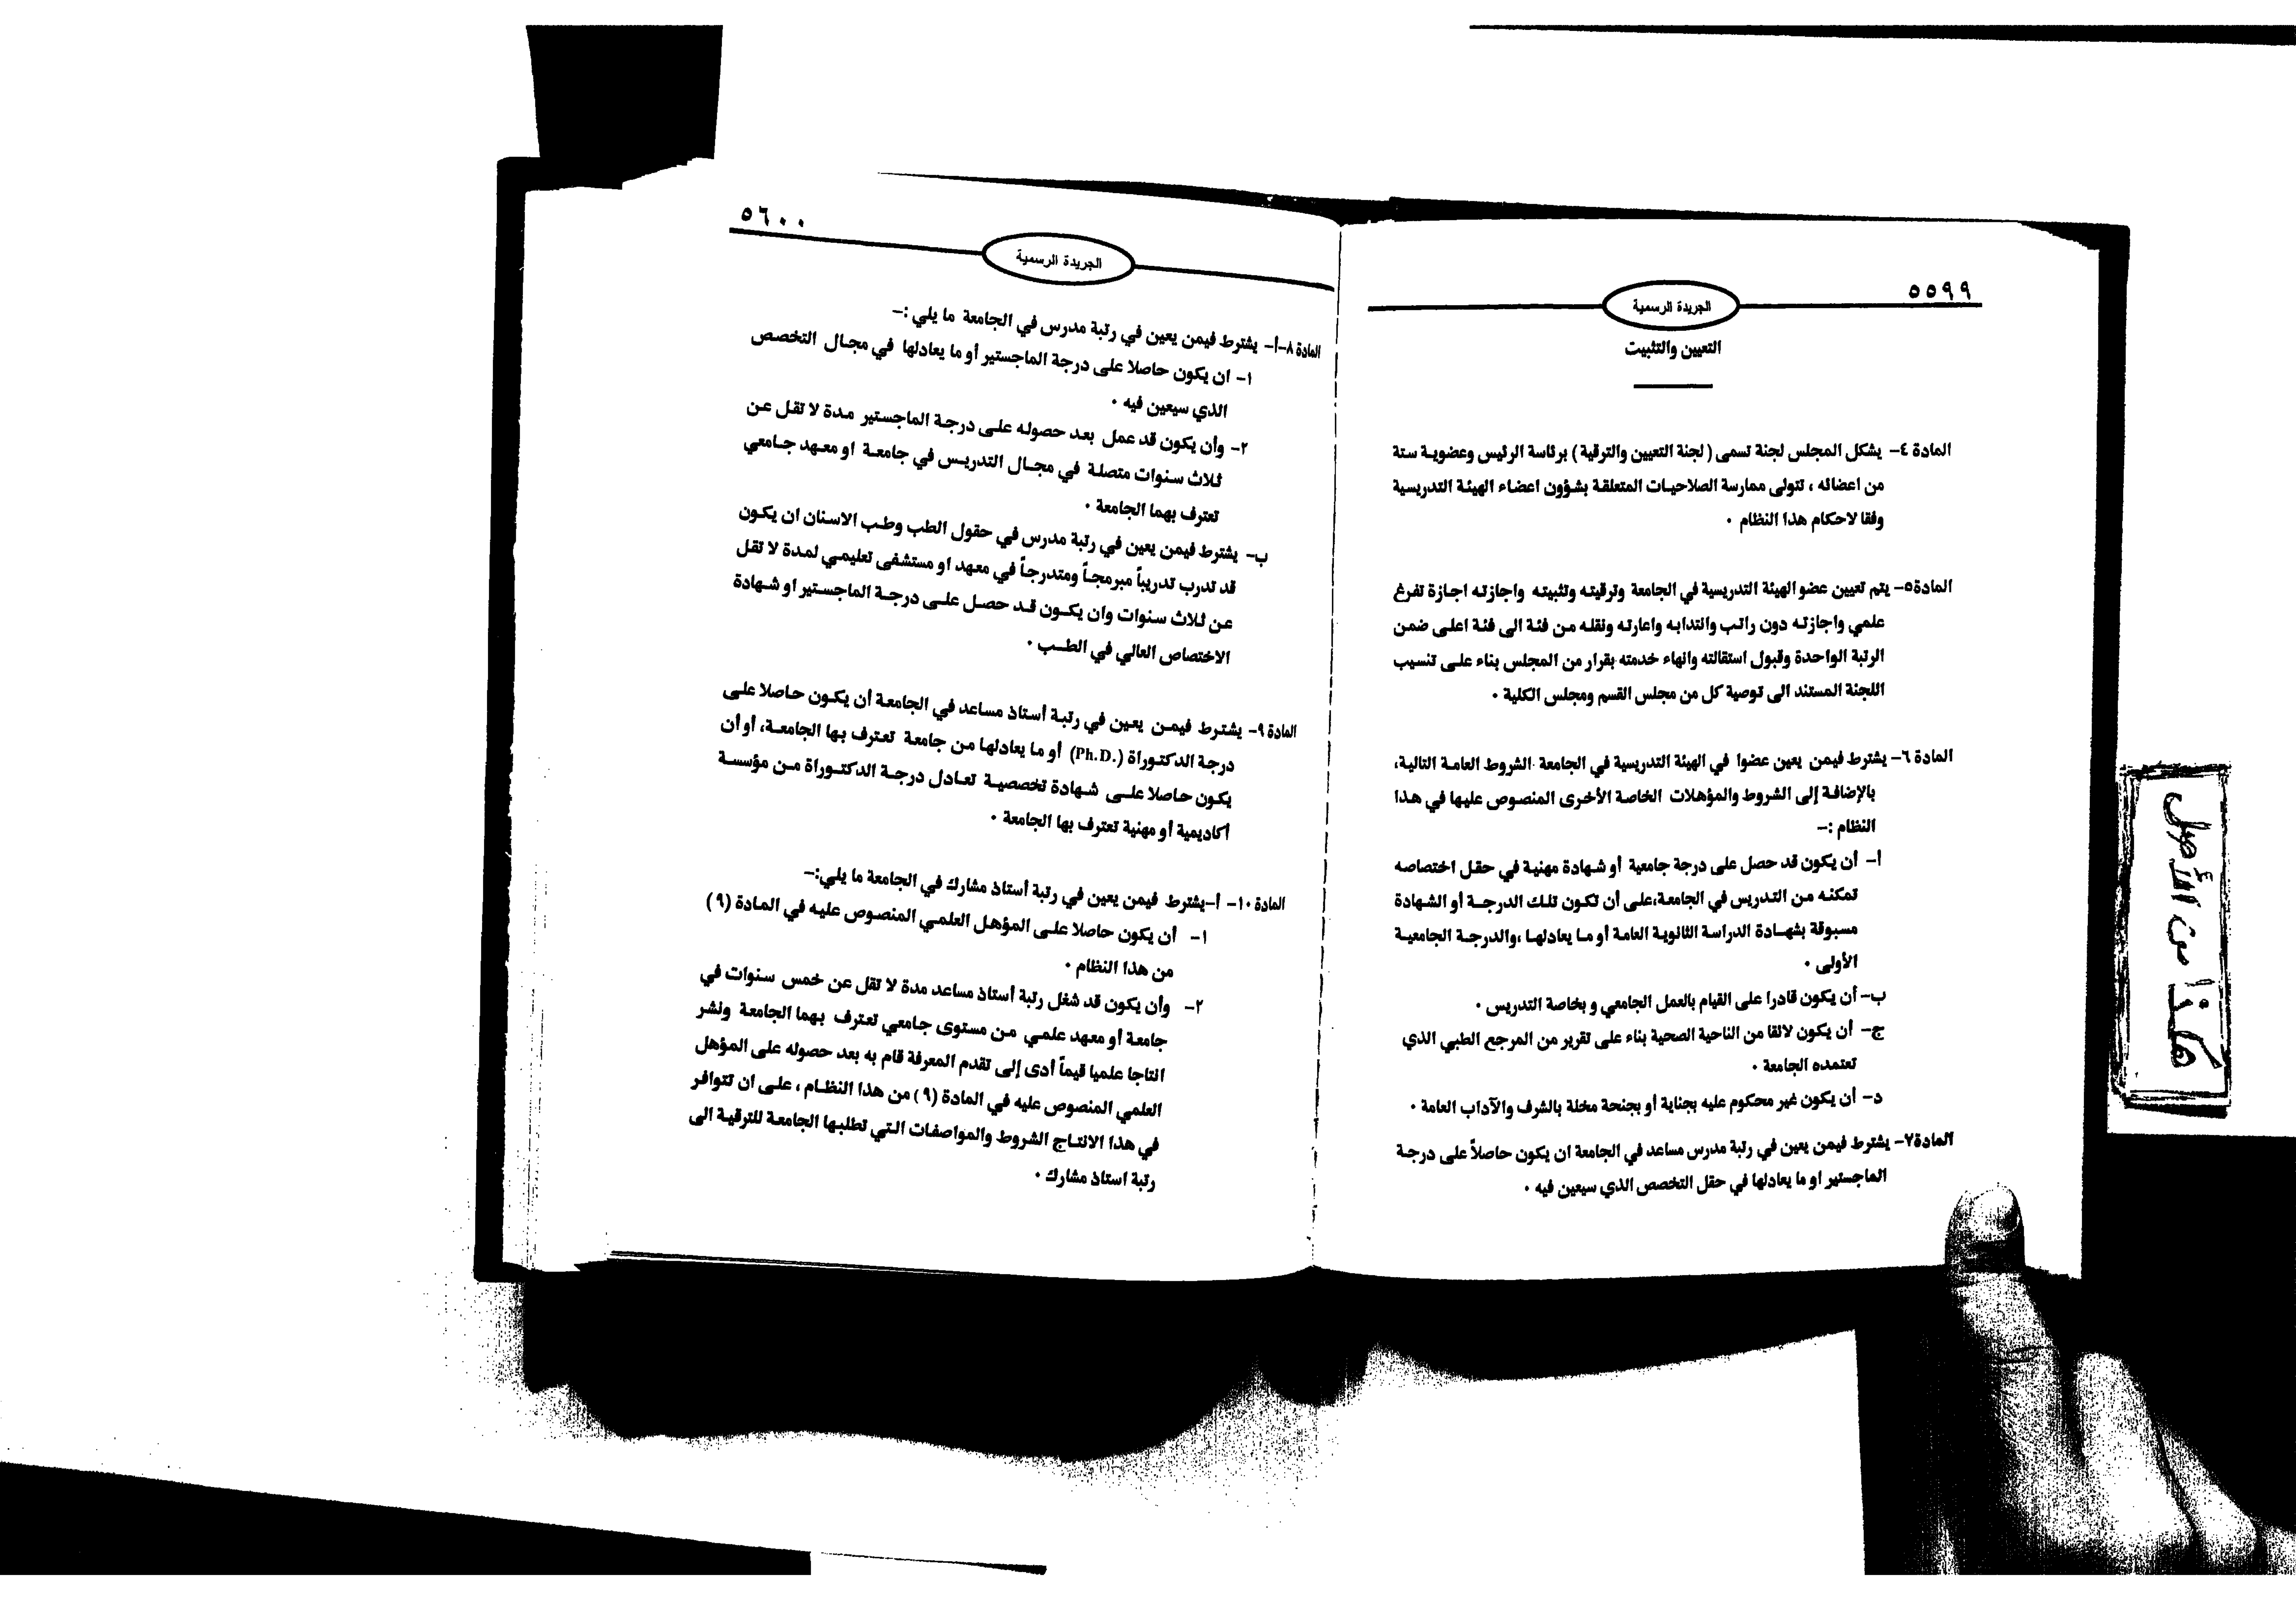 ٥٥٩٩
الجريدة الرسمية
التعيين والتثبيت
المادة ٤- يشكل المجلس لجنة تسمى ( لجنة التعيين والترقية ) برئاسة الرئيس وعضوية ستة
من اعضائه ، تتولى ممارسة الصلاحيات المتعلقة بشؤون اعضاء الهيئة التدريسية
وفقا لاحكام هذا النظام ٠
المادة٥- يتم تعيين عضو الهيئة التدريسية في الجامعة وترقيته وتثبيته واجازته اجازة تفرغ
علمي واجازته دون راتب وانتدابه واعارته ونقله من فئة الى فئة اعلى ضمن
الرتبة الواحدة وقبول استقالته وانهاء خدمته بقرار من المجلس بناء على تنسيب
اللجنة المستند الى توصية كل من مجلس القسم ومجلس الكلية ٠
المادة ٦- يشترط فيمن يعين عضوا في الهيئة التدريسية في الجامعة الشروط العامة التالية،
بالإضافة إلى الشروط والمؤهلات الخاصة الأخرى المنصوص عليها في هذا
النظام :-
أ- أن يكون قد حصل على درجة جامعية أو شهادة مهنية في حقل اختصاصه
تمكنه من التدريس في الجامعة،على أن تكون تلك الدرجة أو الشهادة
مسبوقة بشهادة الدراسة الثانوية العامة أو ما يعادلها ،والدرجة الجامعية
الأولى ٠
ب- أن يكون قادرا على القيام بالعمل الجامعي و بخاصة التدريس ٠
ج- أن يكون لائقا من الناحية الصحية بناء على تقرير من المرجع الطبي الذي
تعتمده الجامعة ٠
د- أن يكون غير محكوم عليه بجناية أو بجنحة مخلة بالشرف والآداب العامة ٠
المادة٧- يشترط فيمن يعين في رتبة مدرس مساعد في الجامعة ان يكون حاصلاً على درجة
الماجستير او ما يعادلها في حقل التخصص الذي سيعين فيه ٠
هكذا من الأصل
٥٦٠٠
الجريدة الرسمية
المادة ٨-أ- يشترط فيمن يعين في رتبة مدرس في الجامعة ما يلي :-
١- ان يكون حاصلا على درجة الماجستير أو ما يعادلها في مجال التخصص
الذي سيعين فيه ٠
٢- وأن يكون قد عمل بعد حصوله على درجة الماجستير مدة لا تقل عن
ثلاث سنوات متصلة في مجال التدريس في جامعة او معهد جامعي
تعترف بهما الجامعة ٠
ب- يشترط فيمن يعين في رتبة مدرس في حقول الطب وطب الاسنان ان يكون
قد تدرب تدريباً مبرمجاً ومتدرجاً في معهد او مستشفى تعليمي لمدة لا تقل
عن ثلاث سنوات وان يكون قد حصل على درجة الماجستير او شهادة
الاختصاص العالي في الطب ٠
المادة ٩- يشترط فيمن يعين في رتبة أستاذ مساعد في الجامعة أن يكون حاصلا على
درجة الدكتوراة (Ph.D.) أو ما يعادلها من جامعة تعترف بها الجامعة، أو أن
يكون حاصلا على شهادة تخصصية تعادل درجة الدكتوراة من مؤسسة
أكاديمية أو مهنية تعترف بها الجامعة ٠
المادة ١٠- أ-يشترط فيمن يعين في رتبة أستاذ مشارك في الجامعة ما يلي:-
١- أن يكون حاصلا على المؤهل العلمي المنصوص عليه في المادة (٩)
من هذا النظام ٠
٢- وأن يكون قد شغل رتبة أستاذ مساعد مدة لا تقل عن خمس سنوات في
جامعة أو معهد علمي من مستوى جامعي تعترف بهما الجامعة ونشر
انتاجا علميا قيماً أدى إلى تقدم المعرفة قام به بعد حصوله على المؤهل
العلمي المنصوص عليه في المادة (٩) من هذا النظام ، على ان تتوافر
في هذا الانتاج الشروط والمواصفات التي تطلبها الجامعة للترقية الى
رتبة استاذ مشارك ٠